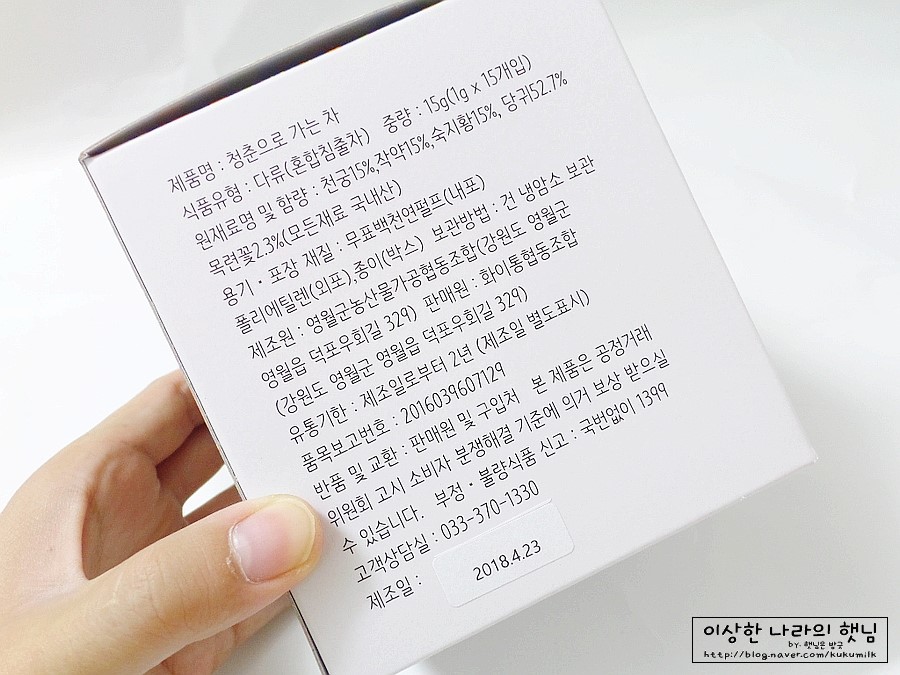 제품명 : 청춘으로 가는 차
식품유형 : 다류(혼합침출차)   중량 : 15g(1g x 15개입)
원재료명 및 함량 : 천궁15%,작약15%,숙지황15%, 당귀52.7%
목련꽃2.3%(모든재료 국내산)
용기·포장 재질 : 무표백천연펄프(내포)
폴리에틸렌(외포),종이(박스)   보관방법 : 건 냉암소 보관
제조원 : 영월군농산물가공협동조합(강원도 영월군
영월읍 덕포우회길 329)   판매원 : 화이통협동조합
(강원도 영월군 영월읍 덕포우회길 329)
유통기한 : 제조일로부터 2년 (제조일 별도표시)
품목보고번호 : 2016039607129
반품 및 교환 : 판매원 및 구입처   본 제품은 공정거래
위원회 고시 소비자 분쟁해결 기준에 의거 보상 받으실
수 있습니다.   부정·불량식품 신고 : 국번없이 1399
고객상담실 : 033-370-1330
제조일 : 2018.4.23
이상한 나라의 햇님
by. 햇님은 방긋
http://blog.naver.com/kukumilk